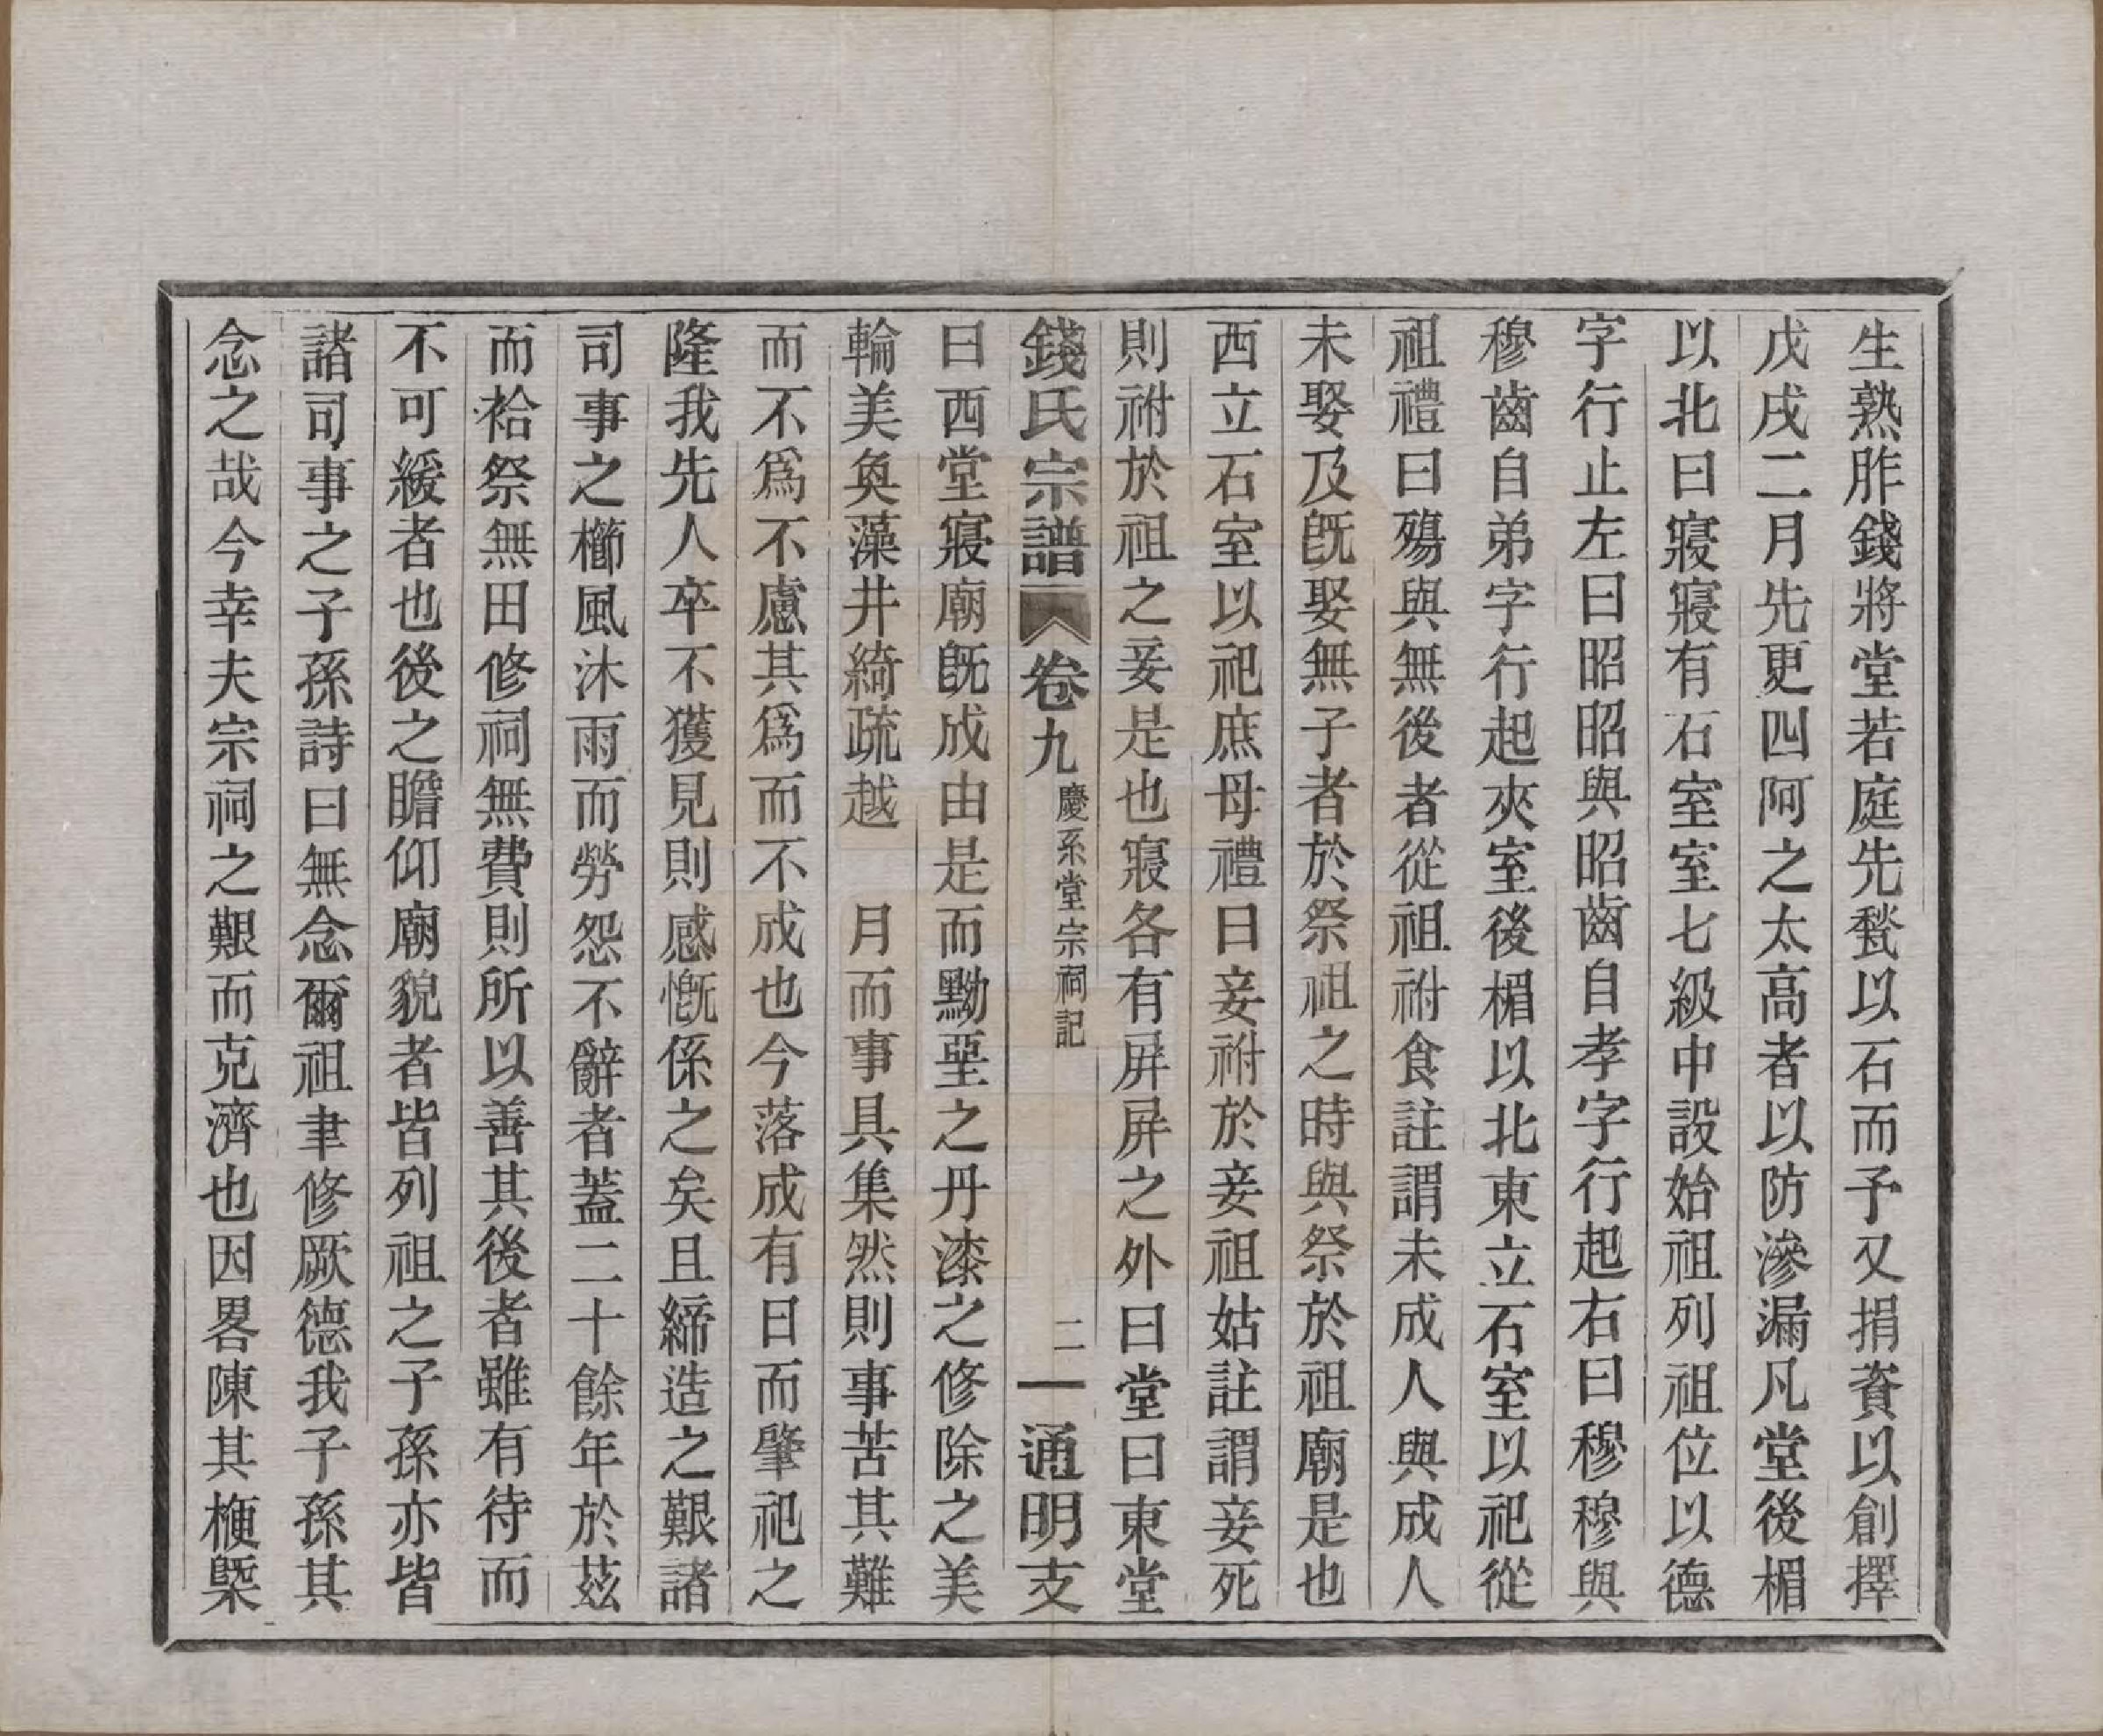 生熟胙錢將堂若庭先甃以石而予又捐資以創擇
戊戌二月先更四阿之太高者以防滲漏凡堂後楣
以北曰寢寢有石室室七級中設始祖列祖位以德
字行止左曰昭昭與昭齒自孝字行起右曰穆穆與
穆齒自弟字行起夾室後楣以北東立石室以祀從
祖禮曰殤與無後者從祖祔食註謂未成人與成人
未娶及旣娶無子者於祭祖之時與祭於祖廟是也
西立石室以祀庶母禮曰妾祔於妾祖姑註謂妾死
則祔於祖之妾是也寢各有屏屏之外曰堂曰東堂
錢氏宗譜 卷九 慶系堂宗祠記 二 通明支
曰西堂寢廟旣成由是而黝堊之丹漆之修除之美
輪美奐藻井綺疏越 月而事具集然則事苦其難
而不爲不慮其爲而不成也今落成有日而肇祀之
隆我先人卒不獲見則感慨係之矣且締造之艱諸
司事之櫛風沐雨而勞怨不辭者蓋二十餘年於茲
而祫祭無田修祠無費則所以善其後者雖有待而
不可緩者也後之瞻仰廟貌者皆列祖之子孫亦皆
諸司事之子孫詩曰無念爾祖聿修厥德我子孫其
念之哉今幸夫宗祠之艱而克濟也因畧陳其梗槩